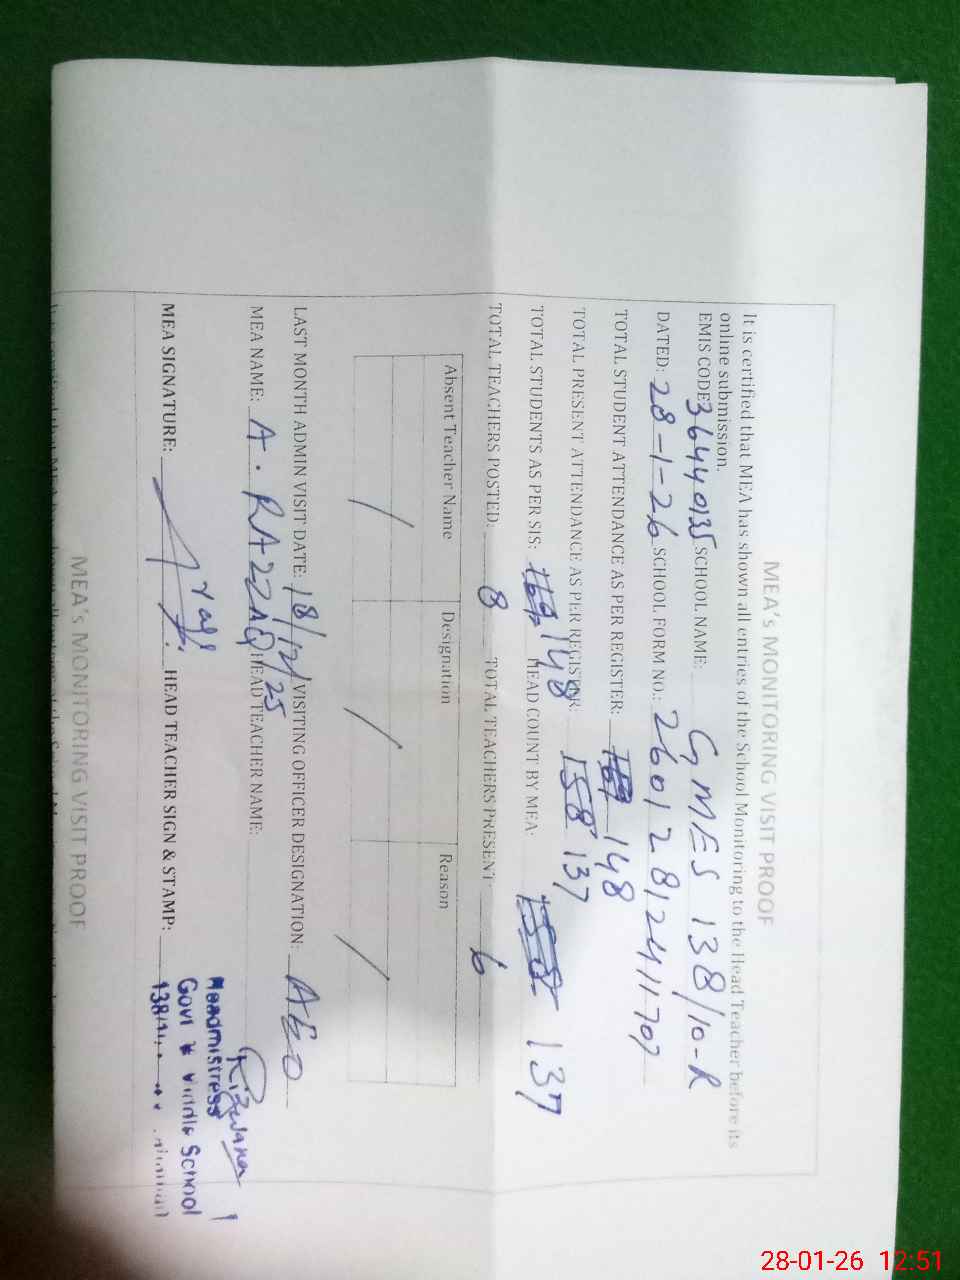 MEA's MONITORING VISIT PROOF
It is certified that MEA has shown all entries of the School Monitoring to the Head Teacher before its
online submission.
EMIS CODE: 36440135 SCHOOL NAME: GMES 138/10-R
DATED: 28-1-26 SCHOOL FORM NO.: 26012812411707
TOTAL STUDENT ATTENDANCE AS PER REGISTER: 148
TOTAL PRESENT ATTENDANCE AS PER REGISTER: 158 137
TOTAL STUDENTS AS PER SIS: 148 HEAD COUNT BY MEA: 158 137
TOTAL TEACHERS POSTED: 8 TOTAL TEACHERS PRESENT: 6
Absent Teacher Name Designation Reason
/ / /
LAST MONTH ADMIN VISIT DATE: 18/12/25 VISITING OFFICER DESIGNATION: AEO
MEA NAME: A. RAZZAQ HEAD TEACHER NAME:
Rizwana
MEA SIGNATURE: HEAD TEACHER SIGN & STAMP:
Headmistress
Govt Middle School
MEA's MONITORING VISIT PROOF
28-01-26 12:51